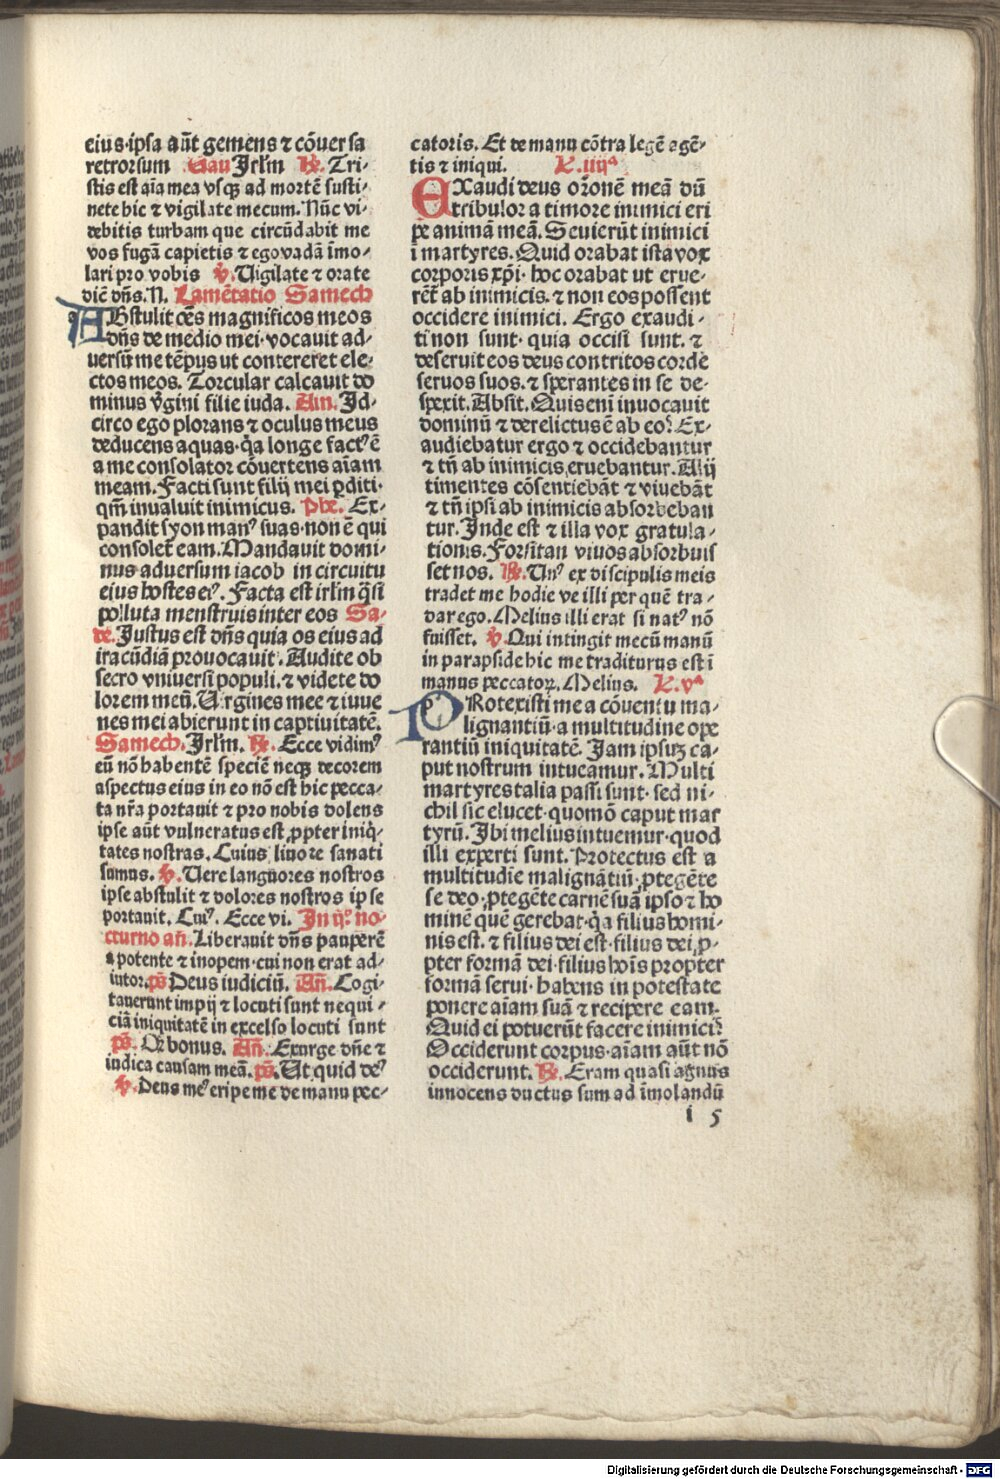 eius·ipsa aūt gemens ⁊ cōuersa
retrorsum Sau Jrl̄m ℟. Tri⸗
stis est aīa mea vsqꝫ ad mortē susti⸗
nete hic ⁊ vigilate mecum. Nūc vi⸗
debitis turbam que circūdabit me
vos fugā capietis ⁊ ego vadā īmo⸗
lari pro vobis ℣. Uigilate ⁊ orate
diē dn̄s. N. Lamētatio Samech
ABstulit oēs magnificos meos
dn̄s de medio mei·vocauit ad⸗
uersū me tēpus ut contereret ele⸗
ctos meos. Torcular calcauit do
minus v̄gini filie iuda. Ain. Jd⸗
circo ego plorans ⁊ oculus meus
deducens aquas·q̄a longe factꝰ ē
a me consolator cōuertens aīam
meam. Facti sunt filij mei ꝑditi·
qm̄ inualuit inimicus. Phe. Ex⸗
pandit syon manꝰ suas·non ē qui
consolet̄ eam. Mandauit domi⸗
nus aduersum iacob in circuitu
eius hostes eiꝰ. Facta est irl̄m q̄si
polluta menstruis inter eos Sa⸗
de. Justus est dn̄s quia os eius ad
iracūdiā prouocauit. Audite ob
secro vniuersi populi. ⁊ videte do
lorem meū. Uirgines mee ⁊ iuue
nes mei abierunt in captiuitatē.
Samech. Jrl̄m. ℟. Ecce vidimꝰ
eū nō habentē speciē neqꝫ decorem
aspectus eius in eo nō est hic pecca⸗
ta nr̄a portauit ⁊ pro nobis dolens
ipse aūt vulneratus est ꝓpter iniq̄⸗
tates nostras. Cuius liuore sanati
sumus. ℣. Uere languores nostros
ipse abstulit ⁊ dolores nostros ipse
portauit. Cuiꝰ. Ecce vi. Jn ij̊ no⸗
cturno an̄. Liberauit dn̄s pauperē
a potente ⁊ inopem·cui non erat ad⸗
iutor. ps̄ Deus iudiciū. An̄. Cogi⸗
tauerunt impij ⁊ locuti sunt nequi⸗
ciā iniquitatē in excelso locuti sunt
ps̄. Q̄ bonus. An̄. Exurge dn̄e ⁊
iudica causam meā. ps̄. Ut quid deꝰ
℣. Deus meꝰ eripe me de manu pec⸗
catoris. Et de manu cōtra legē agē⸗
tis ⁊ iniqui. L. iiijᵃ
EXaudi deus or̄onē meā dū
tribulor a timore inimici eri
pe animā meā. Seuierūt inimici
ī martyres. Quid orabat ista vox
corporis xp̄i·hoc orabat ut erue⸗
rēt ab inimicis. ⁊ non eos possent
occidere inimici. Ergo exaudi⸗
ti non sunt·quia occisi sunt. ⁊
deseruit eos deus contritos corde
seruos suos. ⁊ sperantes in se de⸗
spexit. Absit. Quis eni inuocauit
dominū ⁊ derelictus ē ab eo? Ex⸗
audiebatur ergo ⁊ occidebantur
⁊ tn̄ ab inimicis eruebantur. Alij
timentes cōsentiebāt ⁊ viuebāt
⁊ tn̄ ipsi ab inimicis absorbeban
tur. Jnde est ⁊ illa vox gratula⸗
tionis. Forsitan viuos absorbuis
set nos. ℟. Unꝰ ex discipulis meis
tradet me hodie ve illi per quē tra⸗
dar ego. Melius illi erat si natꝰ nō
fuisset. ℣. Qui intingit mecū manū
in parapside hic me traditurus est ī
manus peccatoꝝ. Melius. L. vᵃ
PRotexisti me a cōuentu ma⸗
lignantiū·a multitudine ope
rantiū iniquitatē. Jam ipsuꝫ ca⸗
put nostrum intueamur. Multi
martyres talia passi sunt·sed ni⸗
chil sic elucet·quomō caput mar
tyrū. Jbi melius intuemur·quod
illi experti sunt. Protectus est a
multitudie malignātiū·ꝓtegēte
se deo·ꝓtegēte carnē suā ipso ⁊ ho
minē quē gerebat·q̄a filius homi⸗
nis est. ⁊ filius dei est·filius dei ꝓ⸗
pter formā dei·filius hoīs propter
formā serui·habens in potestate
ponere aīam suā ⁊ recipere eam.
Quid ei potuerūt facere inimici?
Occiderunt corpus·aīam aūt nō
occiderunt. ℟. Eram quasi agnus
innocens ductus sum ad īmolandū
i 5
Digitalisierung gefördert durch die Deutsche Forschungsgemeinschaft - DFG